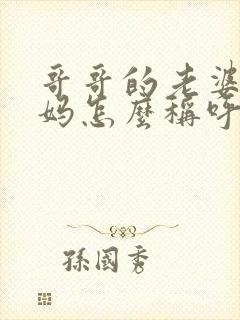 哥哥的老婆
妈怎麼稱呼
孫國秀